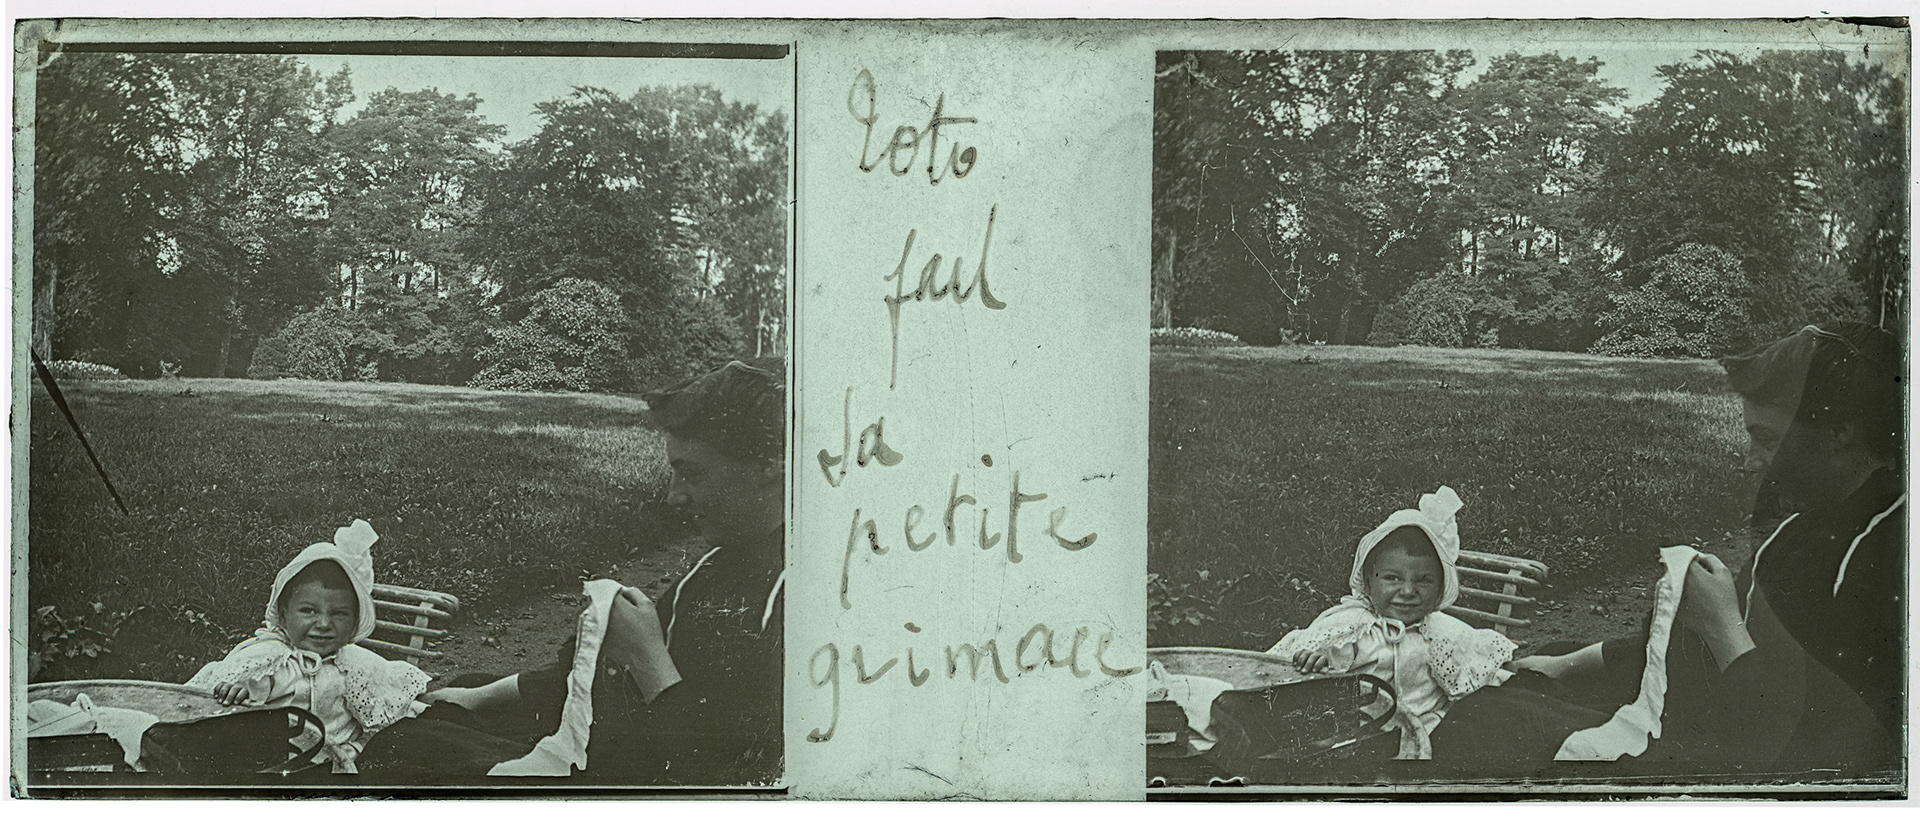 Toto
fait
sa
petite
grimace